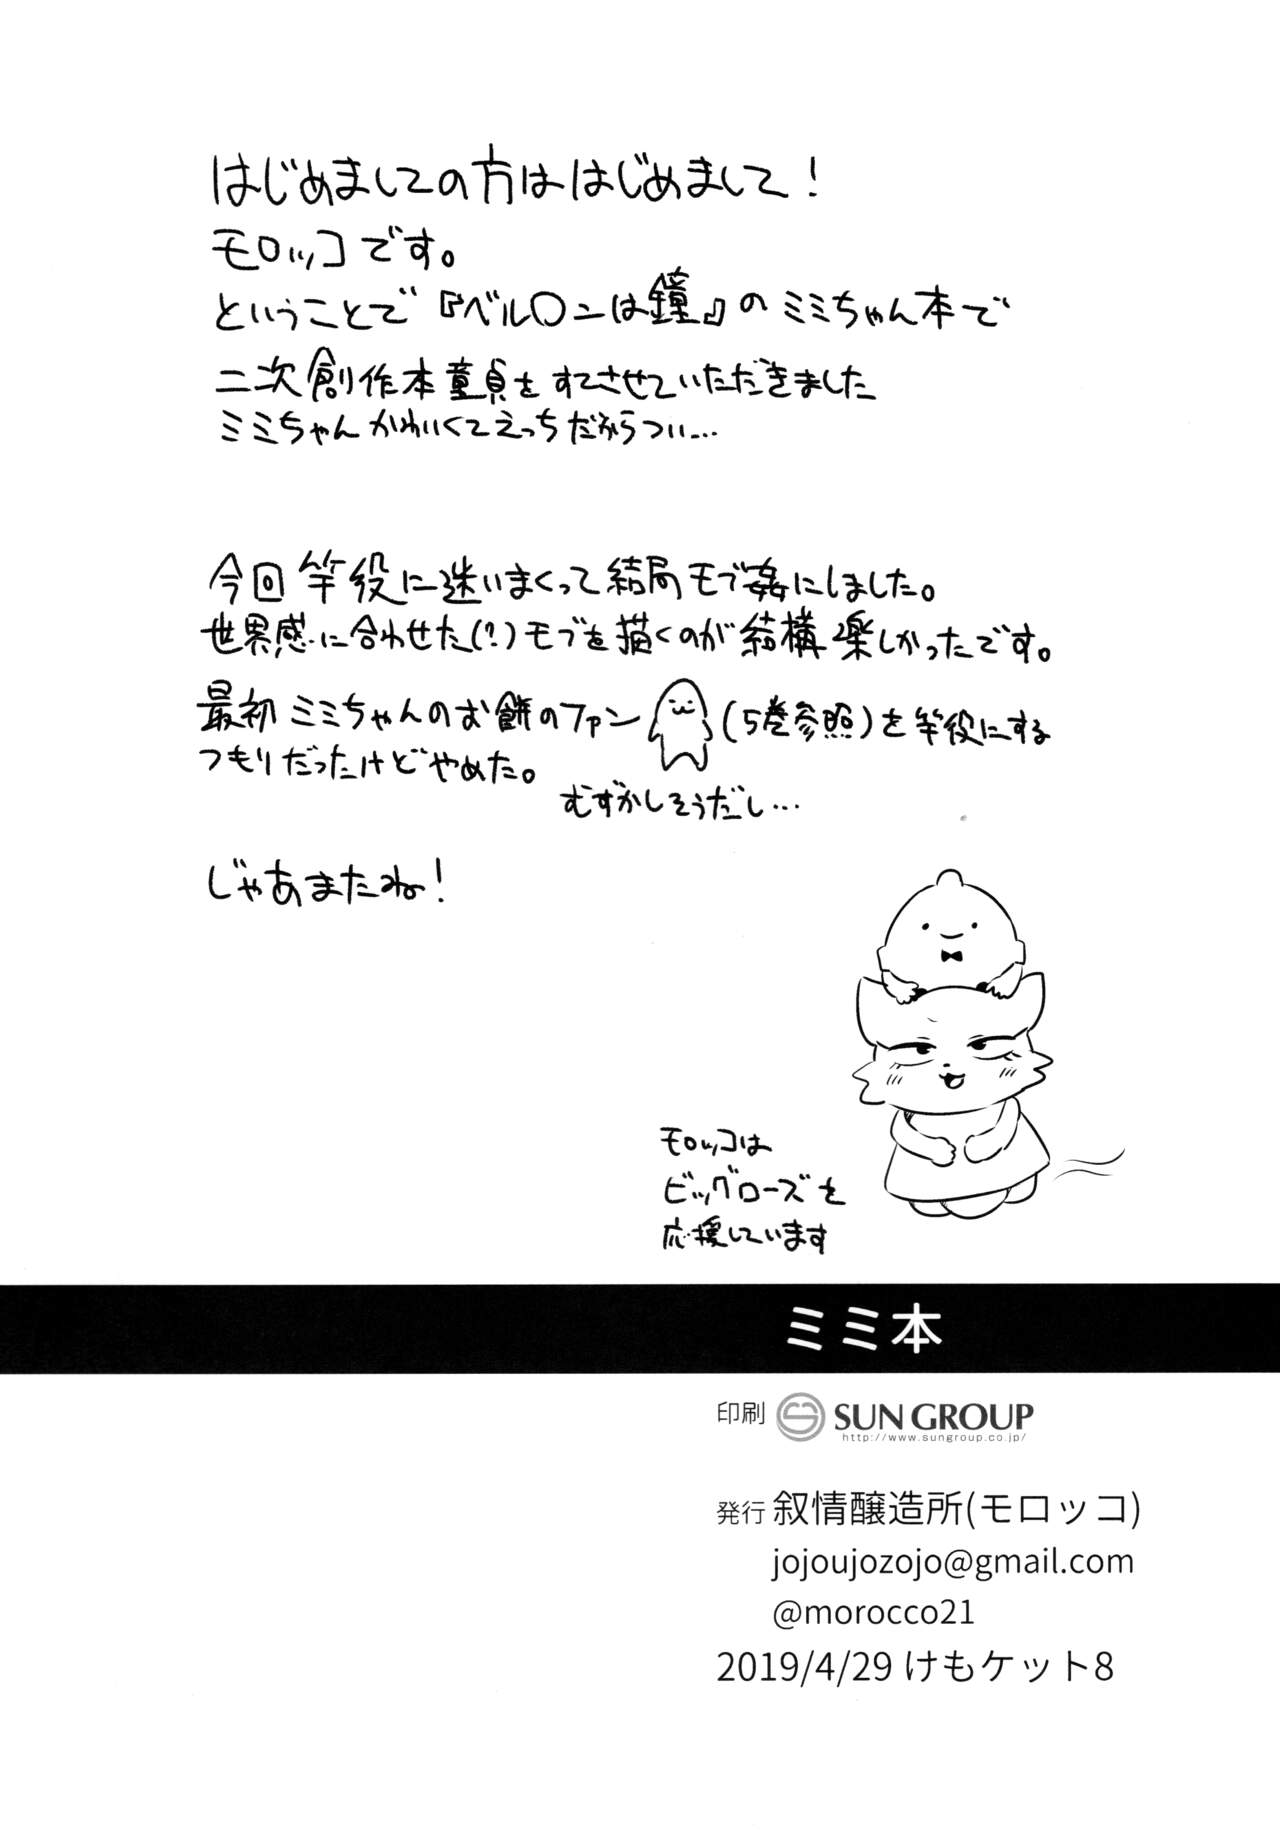 はじめましての方ははじめまして!
モロッコです。
ということで『ベル〇ンは鐘』のミミちゃん本で
二次創作本童貞をすてさせていただきました
ミミちゃんかわいくてえっちだからつい…
今回竿役に迷いまくって結局モブ姦にしました。
世界感に合わせた(?)モブを描くのが結構楽しかったです。
最初ミミちゃんのお餅のファン(5巻参照)を竿役にする
つもりだったけどやめた。
むずかしそうだし…
じゃあまたね!
モロッコは
ビッグローズを
応援しています
ミミ本
印刷 SUN GROUP
http://www.sungroup.co.jp/
発行 叙情醸造所(モロッコ)
jojoujozojo@gmail.com
@morocco21
2019/4/29 けもケット8